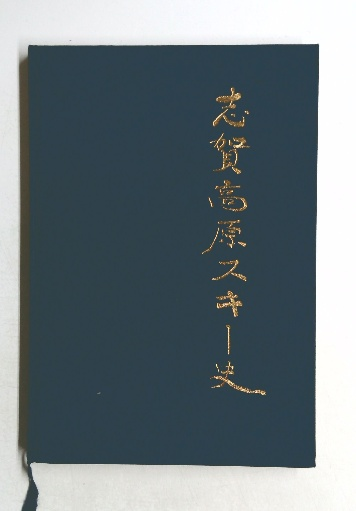 志賀高原スキー史